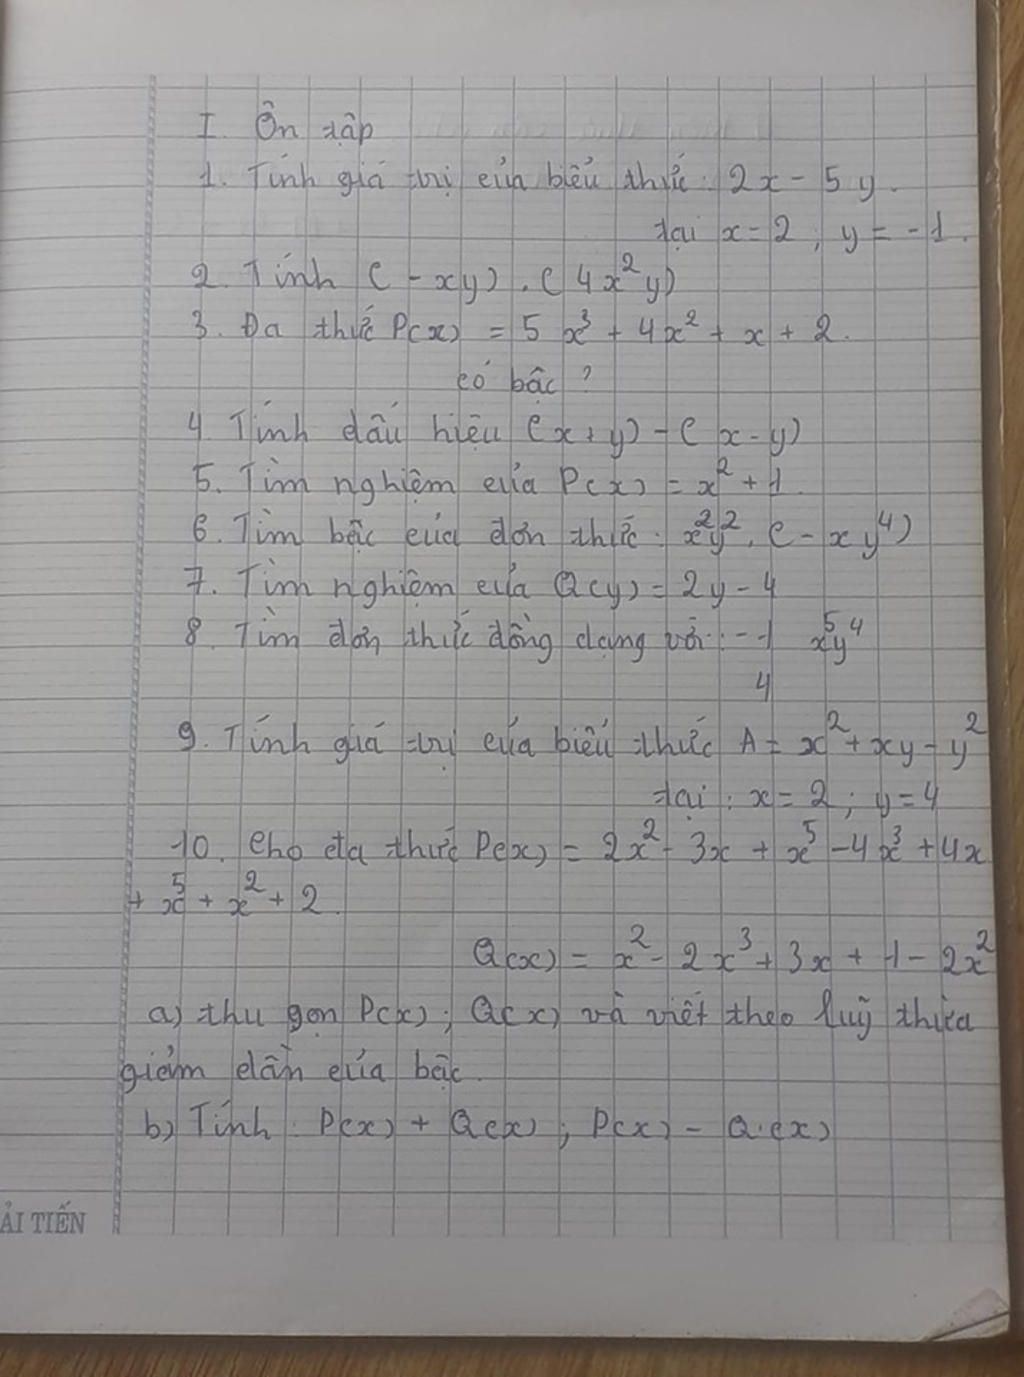 I. Ôn tập
1. Tính giá trị của biểu thức: 2x - 5y.
tại x = 2 ; y = -1.
2. Tính (-xy).(4x²y)
3. Đa thức P(x) = 5x³ + 4x² + x + 2.
có bậc ?
4. Tính dấu hiệu (x+y) - (x-y)
5. Tìm nghiệm của P(x) = x² + 1.
6. Tìm bậc của đơn thức: x²y².(-xy⁴)
7. Tìm nghiệm của Q(y) = 2y - 4
8. Tìm đơn thức đồng dạng với: -1 x⁵y⁴
4
9. Tính giá trị của biểu thức A = x² + xy - y²
tại: x = 2 ; y = 4
10. Cho đa thức P(x) = 2x² - 3x + x⁵ - 4x³ + 4x
+ x⁵ + x² + 2.
Q(x) = x² - 2x³ + 3x + 1 - 2x²
a) thu gọn P(x) ; Q(x) và viết theo luỹ thừa
giảm dần của bậc.
b) Tính: P(x) + Q(x) ; P(x) - Q(x)
ẢI TIẾN